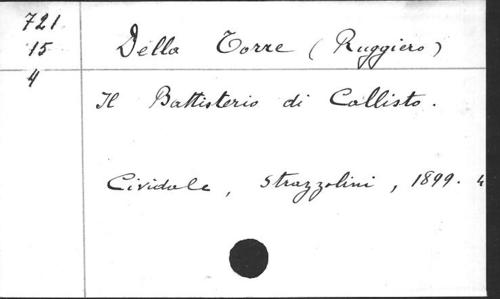 721
15
4
Della Torre (Ruggiero)
Il Battisterio di Callisto.
Cividale, Strazzolini, 1899. 4